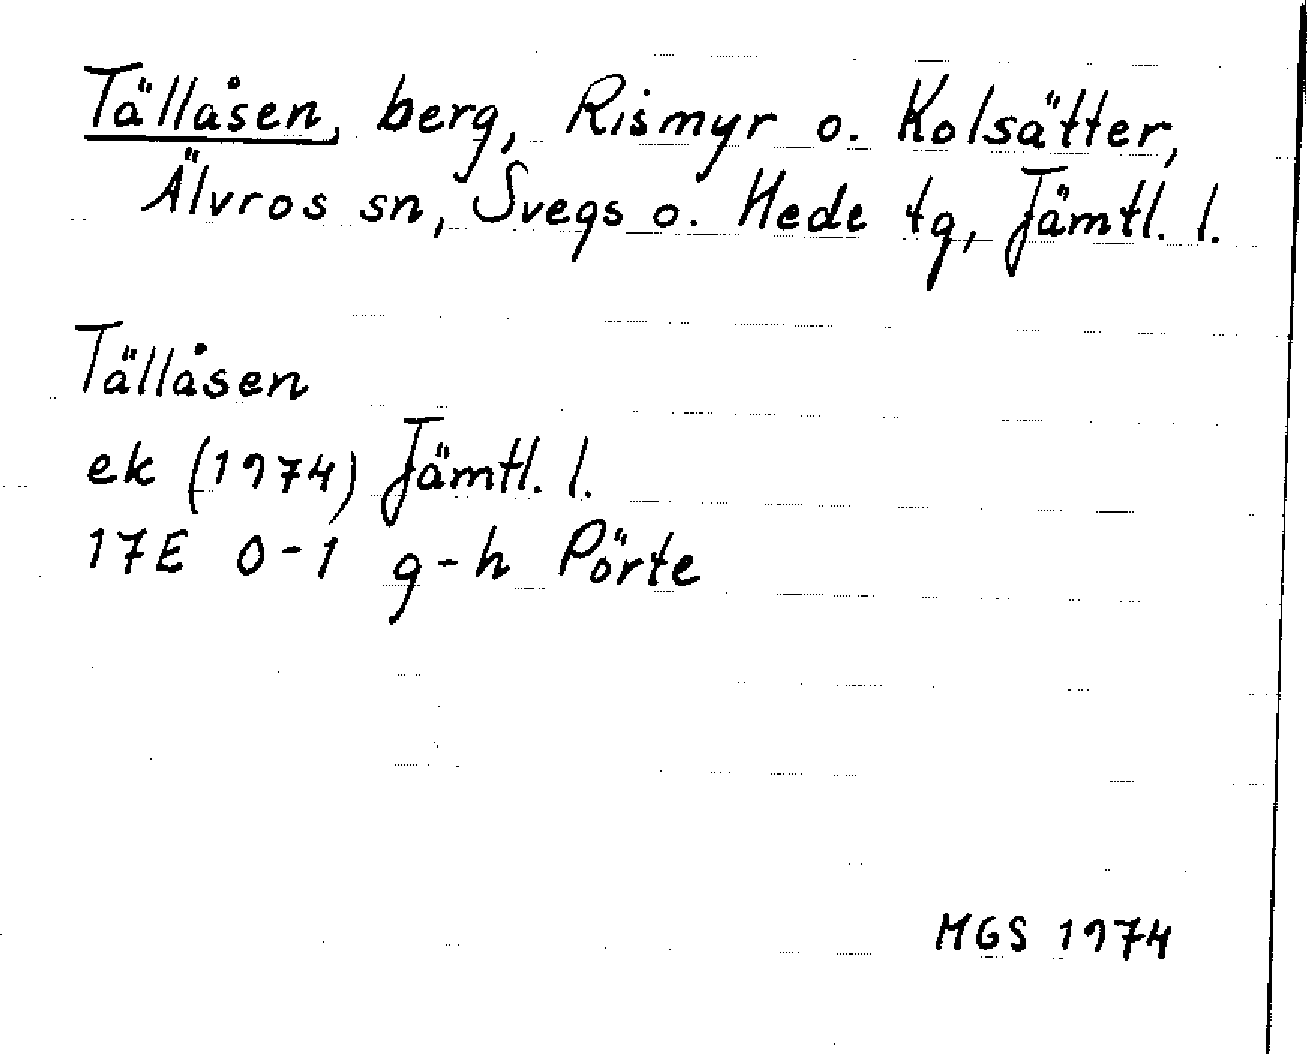 Tällåsen, berg, Rismyr o. Kolsätter,
Älvros sn, Svegs o. Hede tg, Jämtl. l.
Tällåsen
ek (1974) Jämtl. l.
17E 0-1 g-h Pörte
MGS 1974